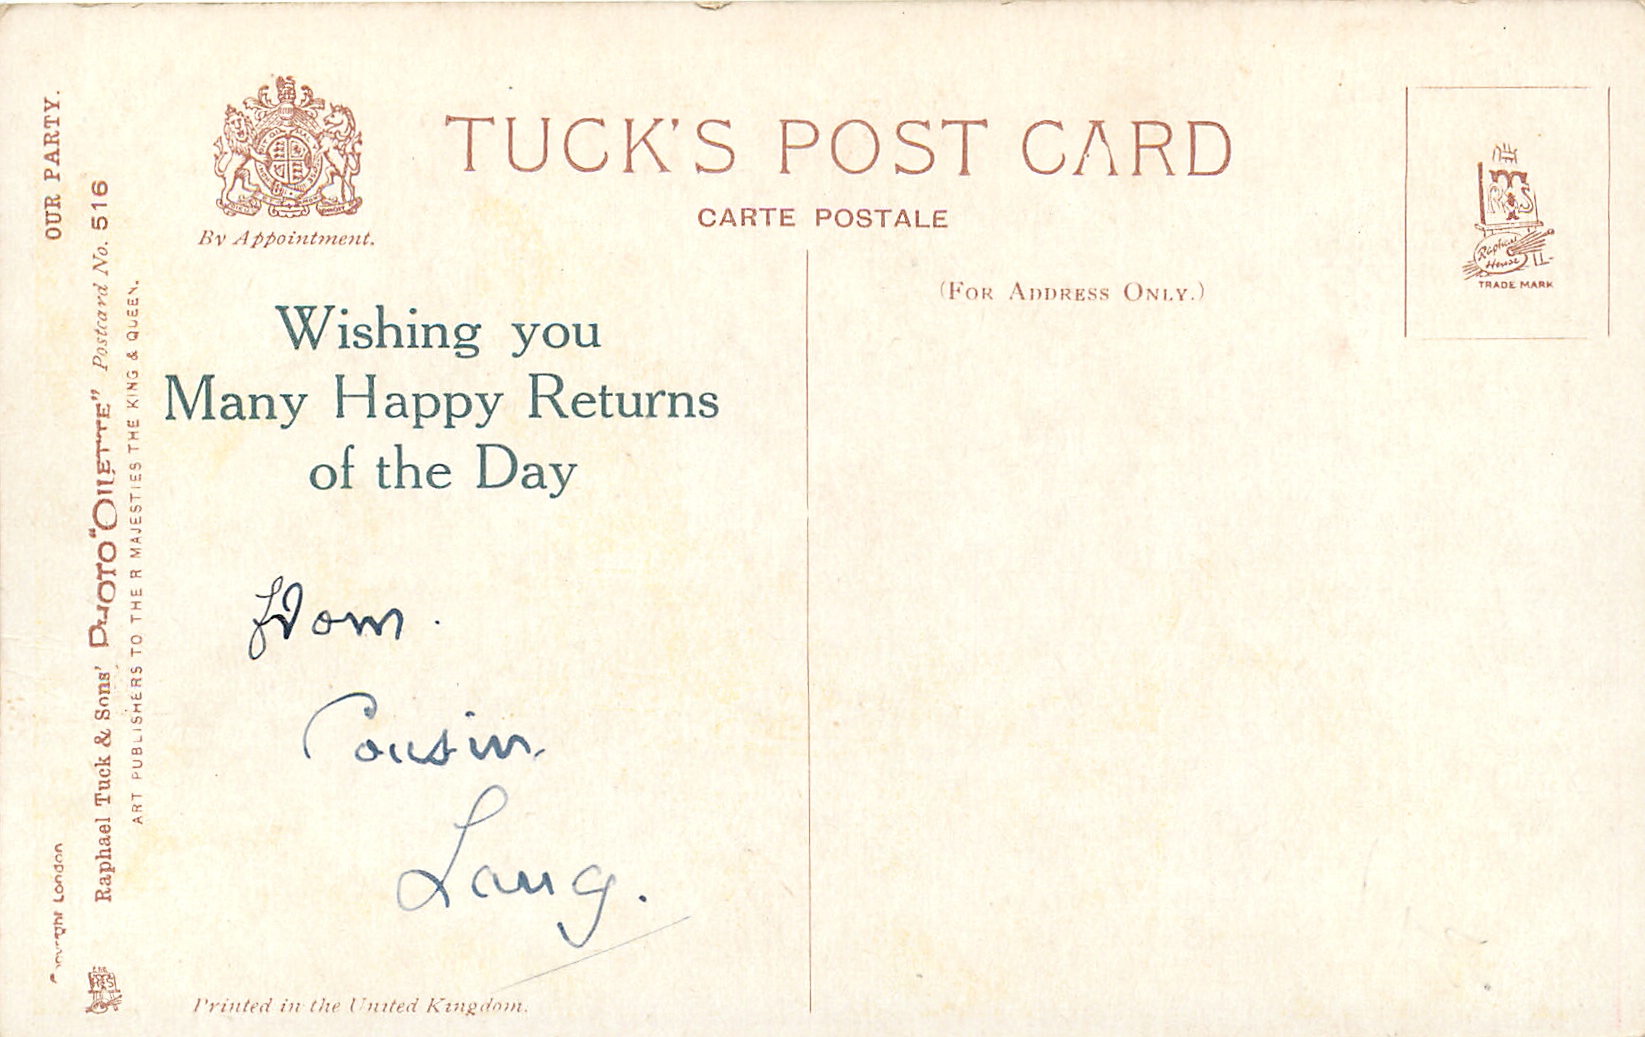 OUR PARTY.
Raphael Tuck & Sons' PHOTO "OILETTE" Postcard No. 516
ART PUBLISHERS TO THEIR MAJESTIES THE KING & QUEEN.
Copyright London
By Appointment.
TUCK'S POST CARD
CARTE POSTALE
(FOR ADDRESS ONLY.)
Raphael
House
TRADE MARK
Wishing you
Many Happy Returns
of the Day
From.
Cousin
Printed in the United Kingdom.